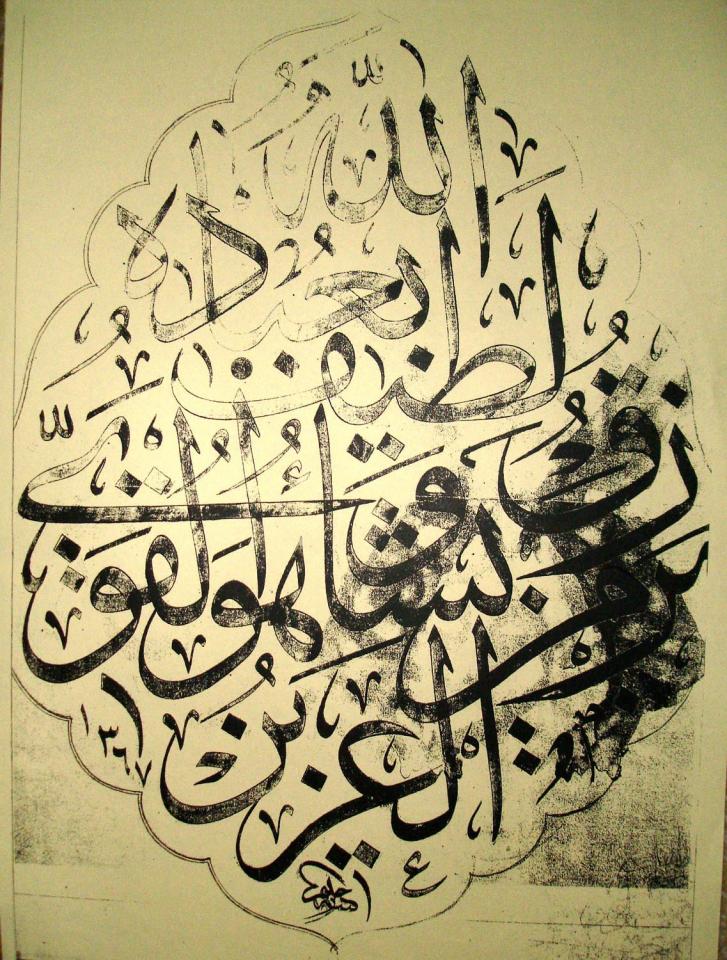 اللَّهُ
لَطِيفٌ بِعِبَادِهِ
يَرْزُقُ مَنْ يَشَاءُ وَهُوَ الْقَوِيُّ
الْعَزِيزُ
١٣٦٧